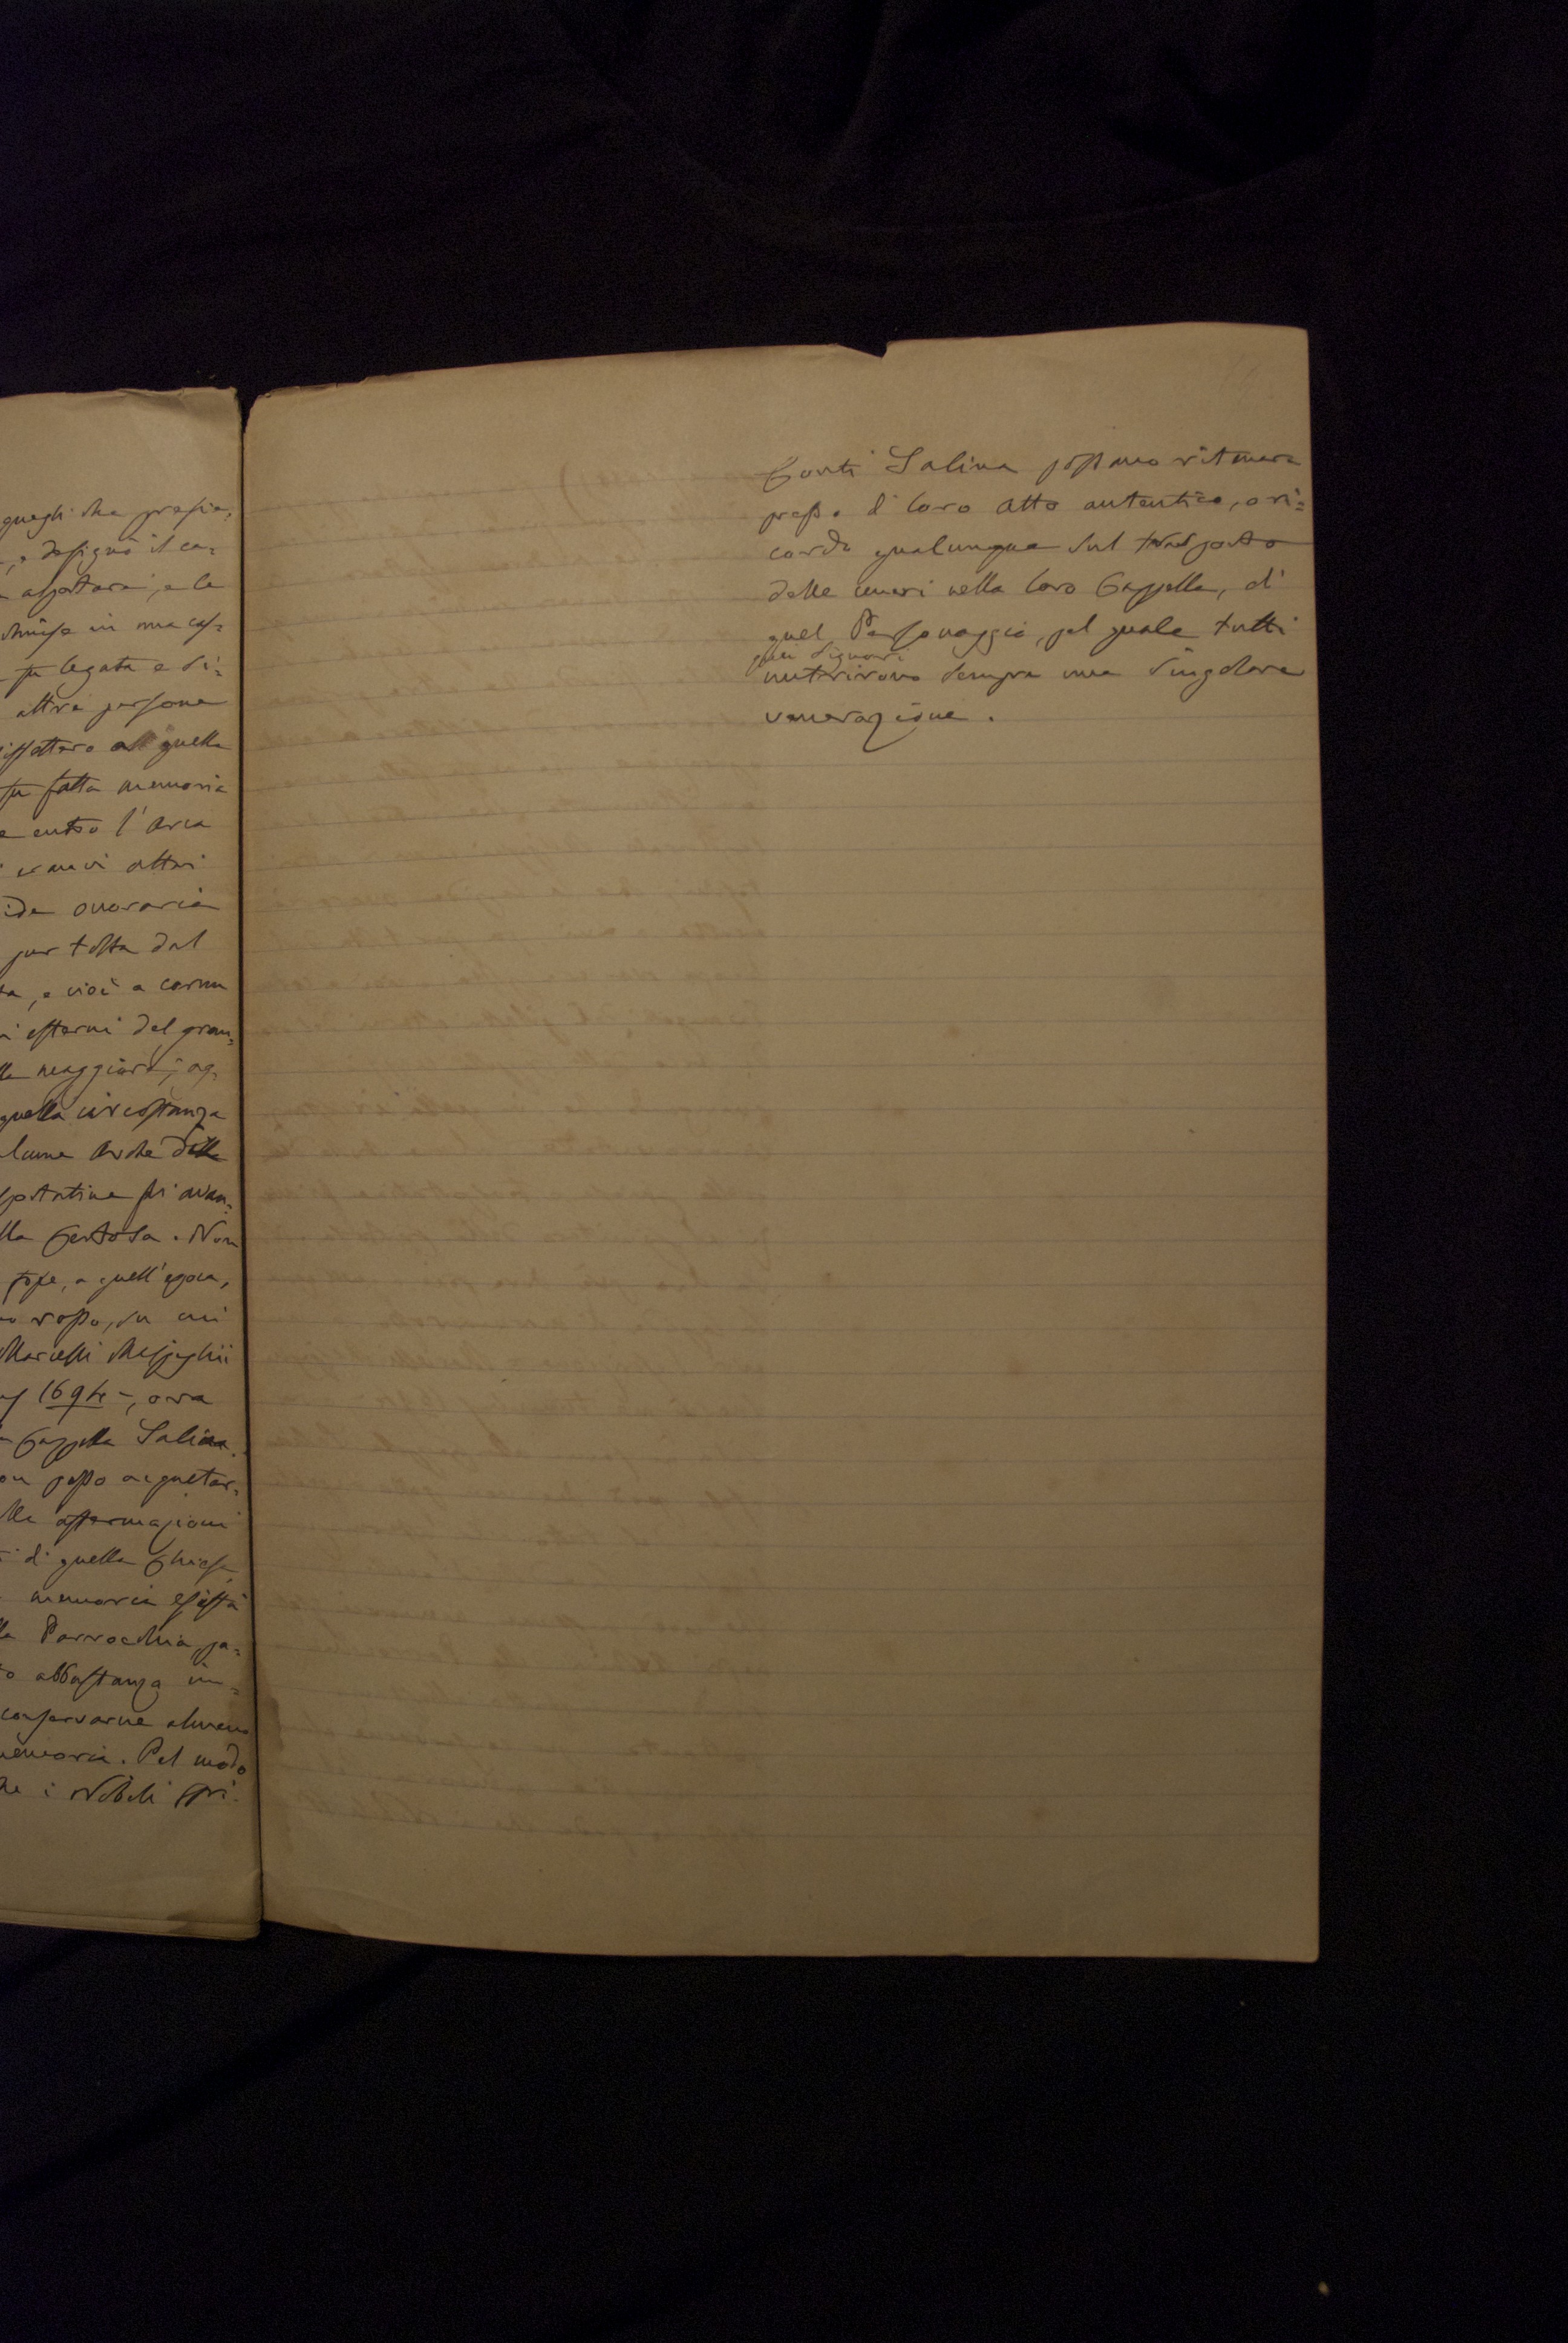 quegli che presie,
, e designò il ca=
asportarsi, e le
chiuse in una cas=
fu legata e si=
altre persone
quella
fu fatta memoria
e entro l'Arca
eranvi altri
onoraria
pur tolta dal
, e cioè a cornu
esterni del gran=
maggiore; ag.
quella circostanza
Arche delle
lla Certosa. Non
fosse, a quell'epoca,
rosso, su cui
Marcelli Malpighii
1694 -, ora
Cappella Salina.
posso acquetar=
lle affermazioni
di quella Chiesa
memoria esista
Parrocchia, pa=
abbastanza im=
conservarne almeno
memoria. Pel modo
i Nobili Sri.
Conti Salina possano ritenere
presso di loro Atto autentico, o ri=
cordo qualunque sul trasporto
delle ceneri nella loro Cappella, di
quel Personaggio, pel quale tutti
quei Signori
nutrirono sempre una singolare
venerazione.